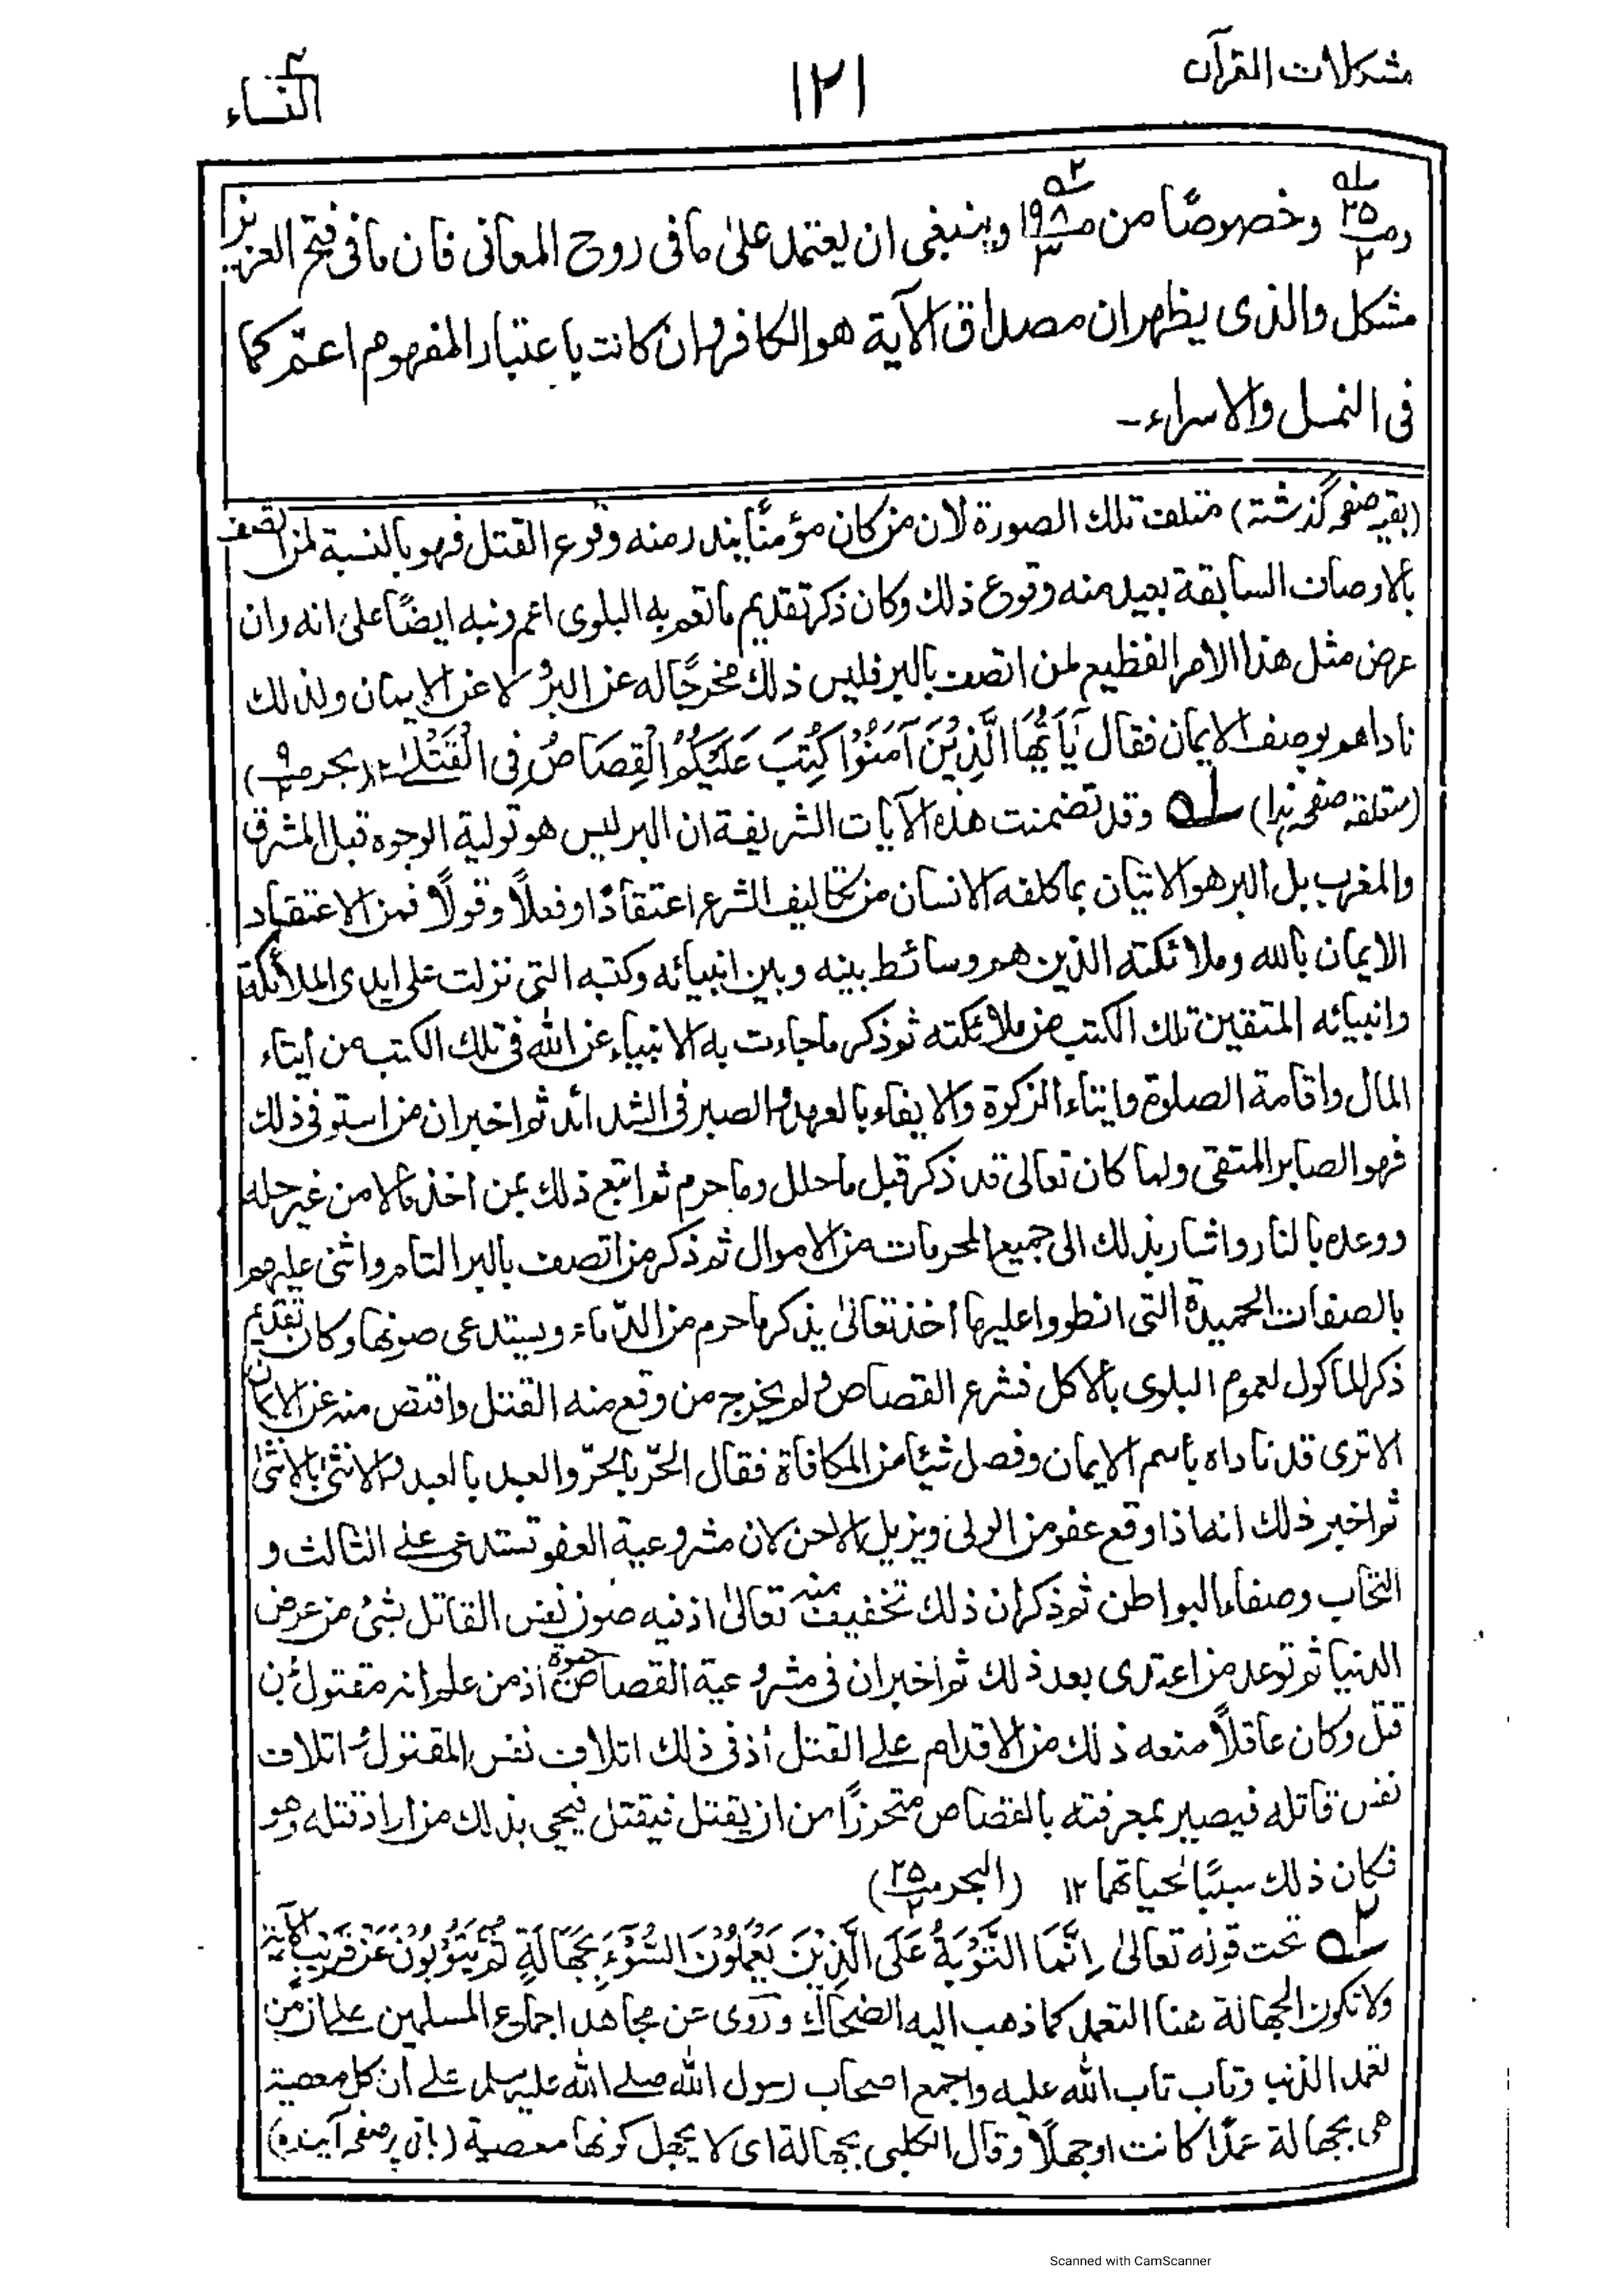 مشكلات القرآن
١٢١
النساء
وخصوصًا من وينبغى ان يعتمد على ما فى روح المعانى فان ما فى فتح العزيز
مشكل والذى يظهر ان مصداق الآية هو الكافر وان كانت باعتبار المفهوم اعمّ كما
فى النمل والاسراء-
(بقیہ صفحہ گذشتہ) متلفت تلك الصورة لان من كان مؤمنًا يندر منه وقوع القتل فهو بالنسبة لمن اتصف
بالاوصاف السابقة بعيد منه وقوع ذلك وكان ذكر تقديم ما تعم به البلوى اعم ونبه ايضًا على انه وان
عرض مثل هذا الامر الفظيم لمن اتصف بالبر فليس ذلك مخرجًا له عن البرّ لا عن الايمان ولذلك
ناداهم بوصف الايمان فقال يَآ اَيُّهَا الَّذِيْنَ آمَنُوْا كُتِبَ عَلَيْكُمُ الْقِصَاصُ فِى الْقَتْلٰے ١٢ (بحر
(متعلقہ صفحہ ہذا) لہ وقد تضمنت هذه الآيات الشريفة ان البر ليس هو تولية الوجوه قبل المشرق
والمغرب بل البر هو الاتيان بما كلفه الانسان من تكاليف الشرع اعتقادًا وفعلاً وقولاً فمن الاعتقاد
الايمان بالله وملائكته الذين هم وسائط بينه وبين انبيائه وكتبه التى نزلت على ايدى الملائكة
وانبيائه المتقين تلك الكتب من ملائكته ثم ذكر ما جاءت به الانبياء عن الله فى تلك الكتب من ايتاء
المال واقامة الصلوة وايتاء الزكوة والايفاء بالعهد والصبر فى الشدائد ثم اخبر ان من استوفى ذلك
فهو الصابر المتقى ولما كان تعالى قد ذكر قبل ما حلل وما حرم ثم اتبع ذلك بمن اخذ مالا من غير حله
ووعده بالنار واشار بذلك الى جميع المحرمات من الاموال ثم ذكر من اتصف بالبر التام واثنى عليهم
بالصفات الحميدة التى انطووا عليها أخذ تعالىٰ يذكر ما حرم من الدّماء ويستدعى صونها وكان تقديم
ذكر الماكول لعموم البلوى بالاكل فشرع القصاص ولم يخرج من وقع منه القتل واقتص منه عن الايمان
الا ترى قد ناداه باسم الايمان وفصل شيئا من المكافاة فقال الحرّ بالحرّ والعبد بالعبد والانثىٰ بالانثىٰ
ثم اخبر ذلك انه اذا وقع عفو من الولى ويزيل الاحن لان مشروعية العفو تستدعى على التالف و
التحاب وصفاء البواطن ثم ذكر ان ذلك تخفيف منه تعالىٰ اذ فيه صون نفس القاتل بشئ من عرض
الدنيا ثم توعد من اعتدى بعد ذلك ثم اخبر ان فى مشروعية القصاص حيوة اذ من علم انه مقتول بمن
قتل وكان عاقلاً منعه ذلك من الاقدام على القتل أذ فى ذلك اتلاف نفس المقتول واتلاف
نفس قاتله فيصير بمعرفته بالقصاص متحرزًا من ان يقتل فيقتل فيحى بذلك من اراد قتله وهو
فكان ذلك سببًا لحياتهما ١٢ (البحر
تحت قوله تعالىٰ اِنَّمَا التَّوْبَةُ عَلَى الَّذِيْنَ يَعْمَلُوْنَ السُّوْٓءَ بِجَهَالَةٍ ثُمَّ يَتُوْبُوْنَ مِنْ قَرِيْبٍ الآية
ولا تكون الجهالة هنا التعمد كما ذهب اليه الضحاك وروى عن مجاهد اجماع المسلمين على ان من
تعمد الذنب وتاب تاب الله عليه واجمع اصحاب رسول الله صلے الله عليہ وسلم علے أن كل معصية
هى بجهالة عمدًا كانت او جهلاً وقال الكلبى بجهالة اى لا يجهل كونها معصية (باقی بر صفحہ آیندہ)
Scanned with CamScanner